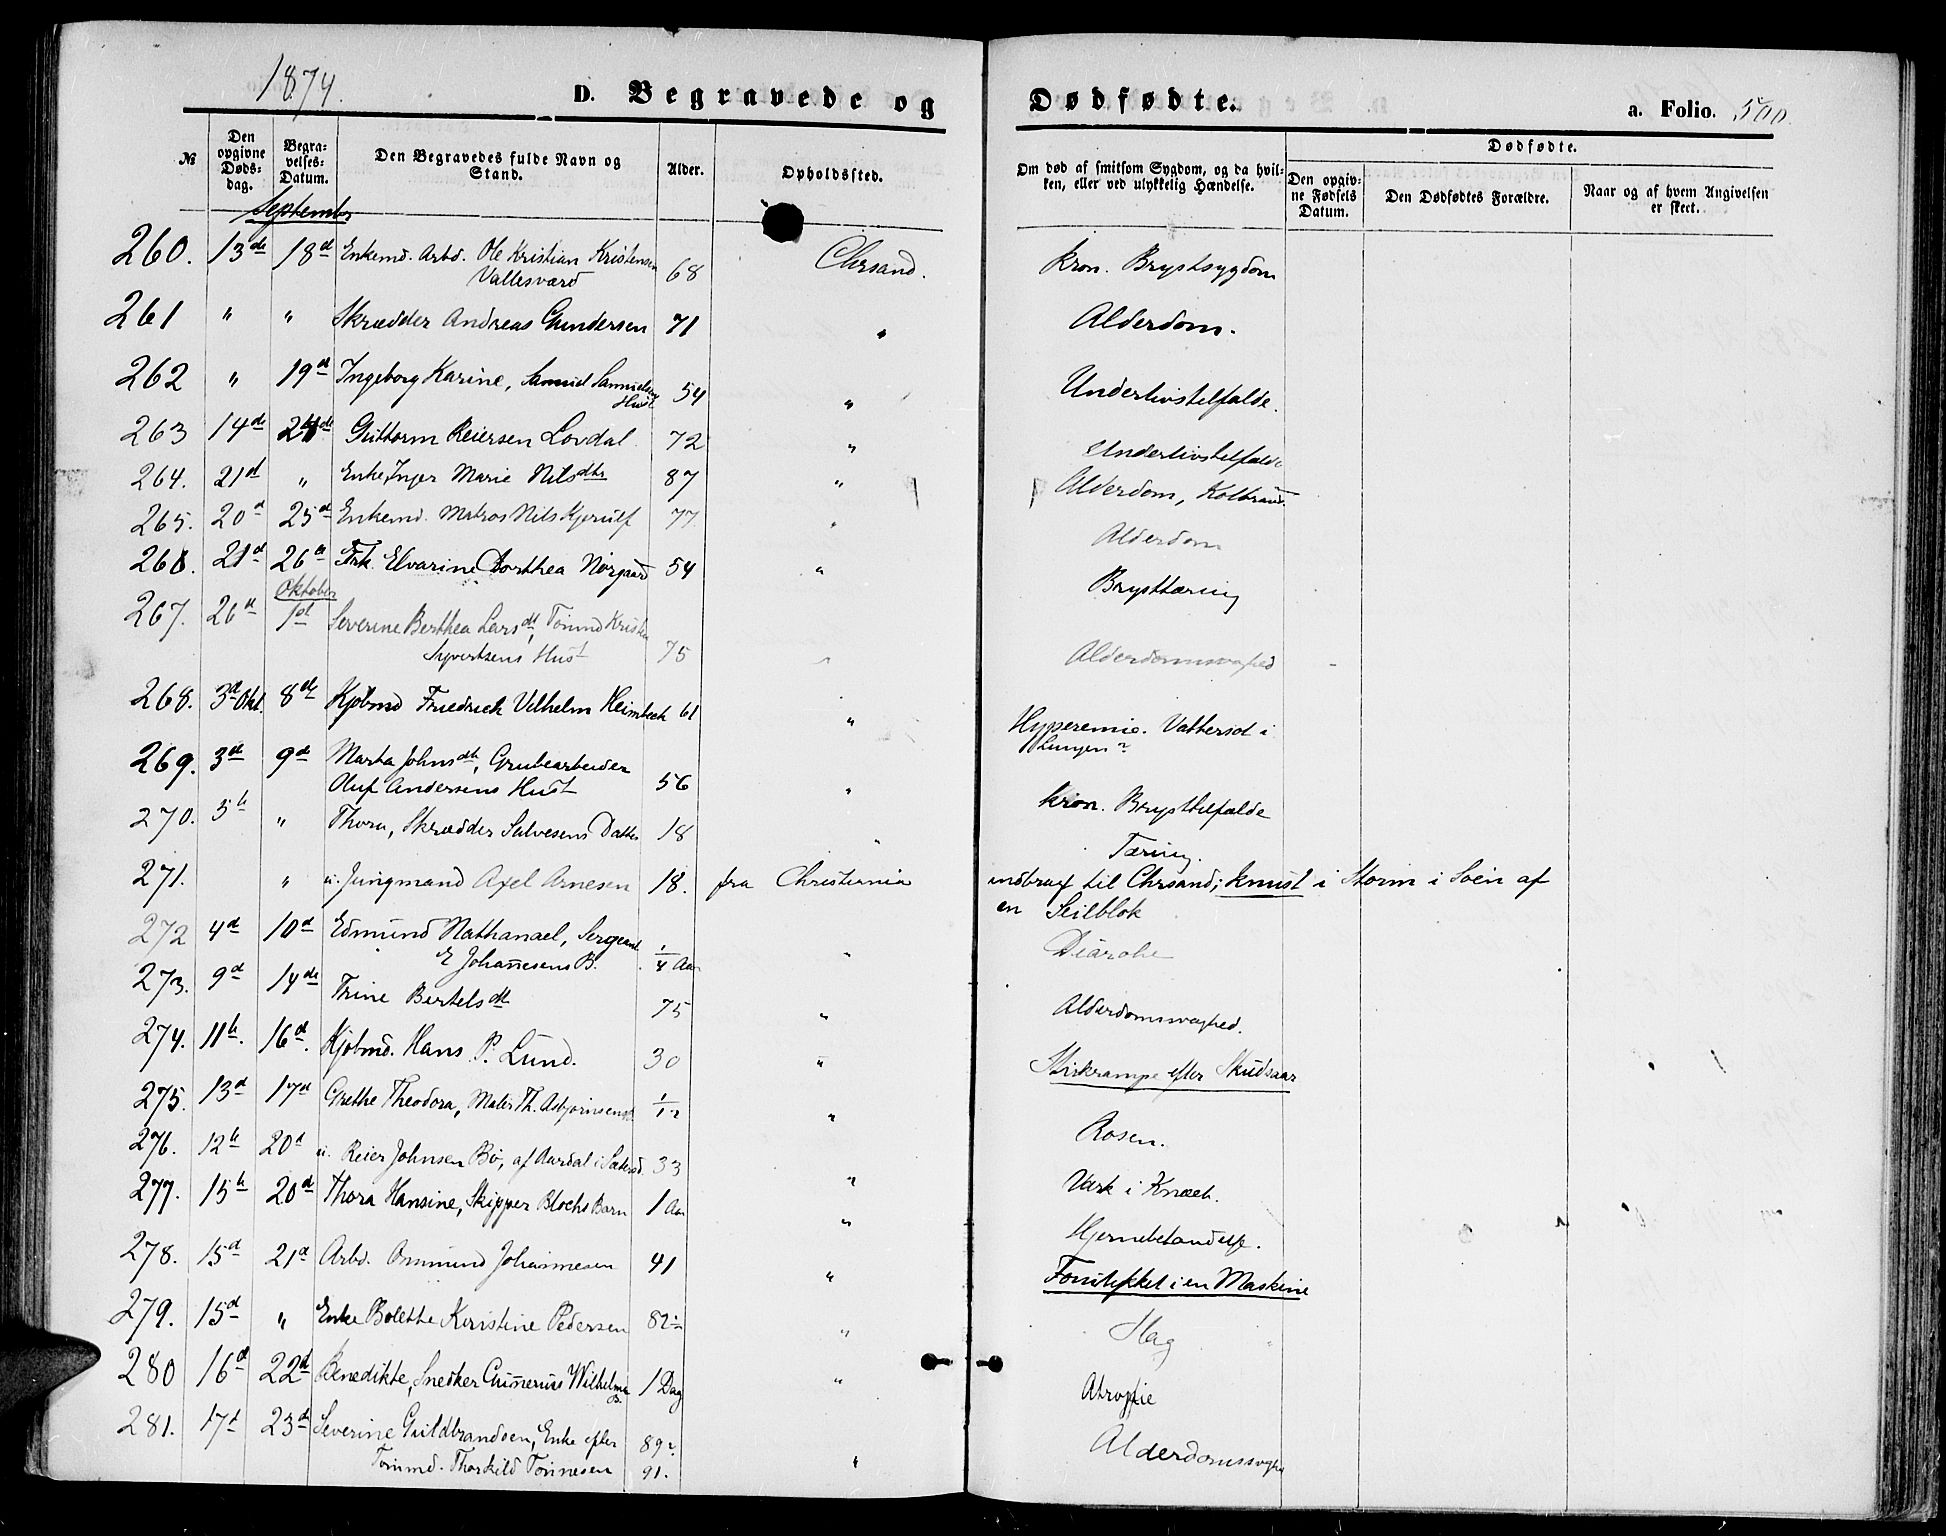 1874. D. Begravede og Dødfødte. a. Folio. 500.
№ Den opgivne Døds-dag. Begra-velses-Datum. Den Begravedes fulde Navn og Stand. Alder. Opholdssted. Om død af smitsom Sygdom, og da hvil-ken, eller ved ulykkelig Hændelse. Dødfødte.
Den opgiv-ne Fødsels Datum. Den Dødfødtes Forældre. Naar og af hvem Angivelsen er skeet.
September
260. 13de 18d Enkemd. Arbd. Ole Kristian Kristensen
Vallesværd 68 Chrsand. kron. Brystsygdom
261 " " Skrædder Andreas Gundersen 71 " Alderdom.
262 " 19d Ingeborg Karine, Samuel Samuelsens
Hust 54 " Underlivstilfælde.
263 14de 24de Guttorm Reiersen Lovdal 72 " Underlivstilfælde
264. 21d " Enke, Inger Marie Nilsdtr 87 " Alderdom, Kolbrand.
265. 20d 25d Enkemd. Matros Nils Kjerulf 77 " Alderdom
266. 21d 26d Frk. Elvarine Dorthea Nørgaard 54 " Brysttæring
Oktober
267. 26d 1st Severine Berthea Larsdt, Tømmd Kristen
Syvertsens Hust 75 " Alderdomssvaghed
268. 3d Okt. 8de Kjøbmd Friedrich Vilhelm Heimbech 61 " Hyperemie. Vattersot i
Lungen?
269. 3d 9d Marta Johnsdt, Grubearbeider
Oluf Andersens Hust 56 " kron. Brysttilfælde
270. 5h " Thora, Skrædder Salvesens Datter 18 " Tæring.
271. " u. Jungmand Axel Arnesen 18. fra Christiania indbragt til Chrsand; knust i Storm i Søen af
en Seilblok
272 4d 10d Edmund Nathanael, Sergeant
E Johannesens B. 1/4 Aar " Diarohe
273. 9d 14de Trine Bertelsdt 75 " Alderdomssvaghed.
274. 11h. 16d. Kjøbmd. Hans P. Lund. 30 " Stivkrampe efter Skudsaar
275. 13d 17d Grethe Theodora, Maler Th. Asbjørnsens 1/12 " Rosen.
276. 12h 20d u. Reier Johnsen Bø, af Aardal i Sætersd. 33 " Værk i Knæet.
277. 15h 20d Thora Hansine, Skipper Blochs Barn 1 Aar " Hjernebetændelse.
278. 15d 21d Arbd. Ommund Johannesen 41 " Forulykket i en Maskine
279. 15d " Enke Bolette Kristine Pedersen 82 " Slag
280 16d 22d Benedikte, Snedker Gunnerius Wilhelms
B. 1 Dag " Atrophie
281. 17d 23d Severine Guldbrandsen, Enke efter 89?
Tømmd. Thorkild Tønnesen 91. " Alderdomssvaghe